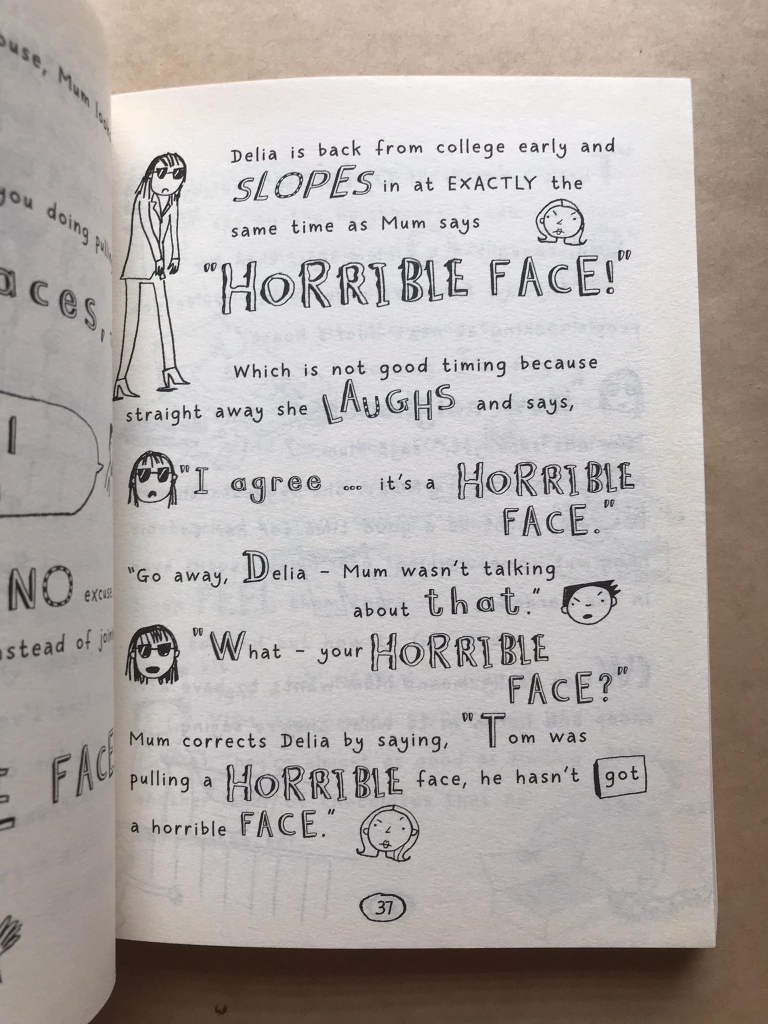 ouse, Mum
you doing
aces,
I
NO excus
nstead of join
E FACE
Delia is back from college early and
SLOPES in at EXACTLY the
same time as Mum says
"HORRIBLE FACE!"
Which is not good timing because
straight away she LAUGHS and says,
"I agree ... it's a HORRIBLE
FACE."
"Go away, Delia - Mum wasn't talking
about that."
"What - your HORRIBLE
FACE?"
Mum corrects Delia by saying, "Tom was
pulling a HORRIBLE face, he hasn't got
a horrible FACE."
37